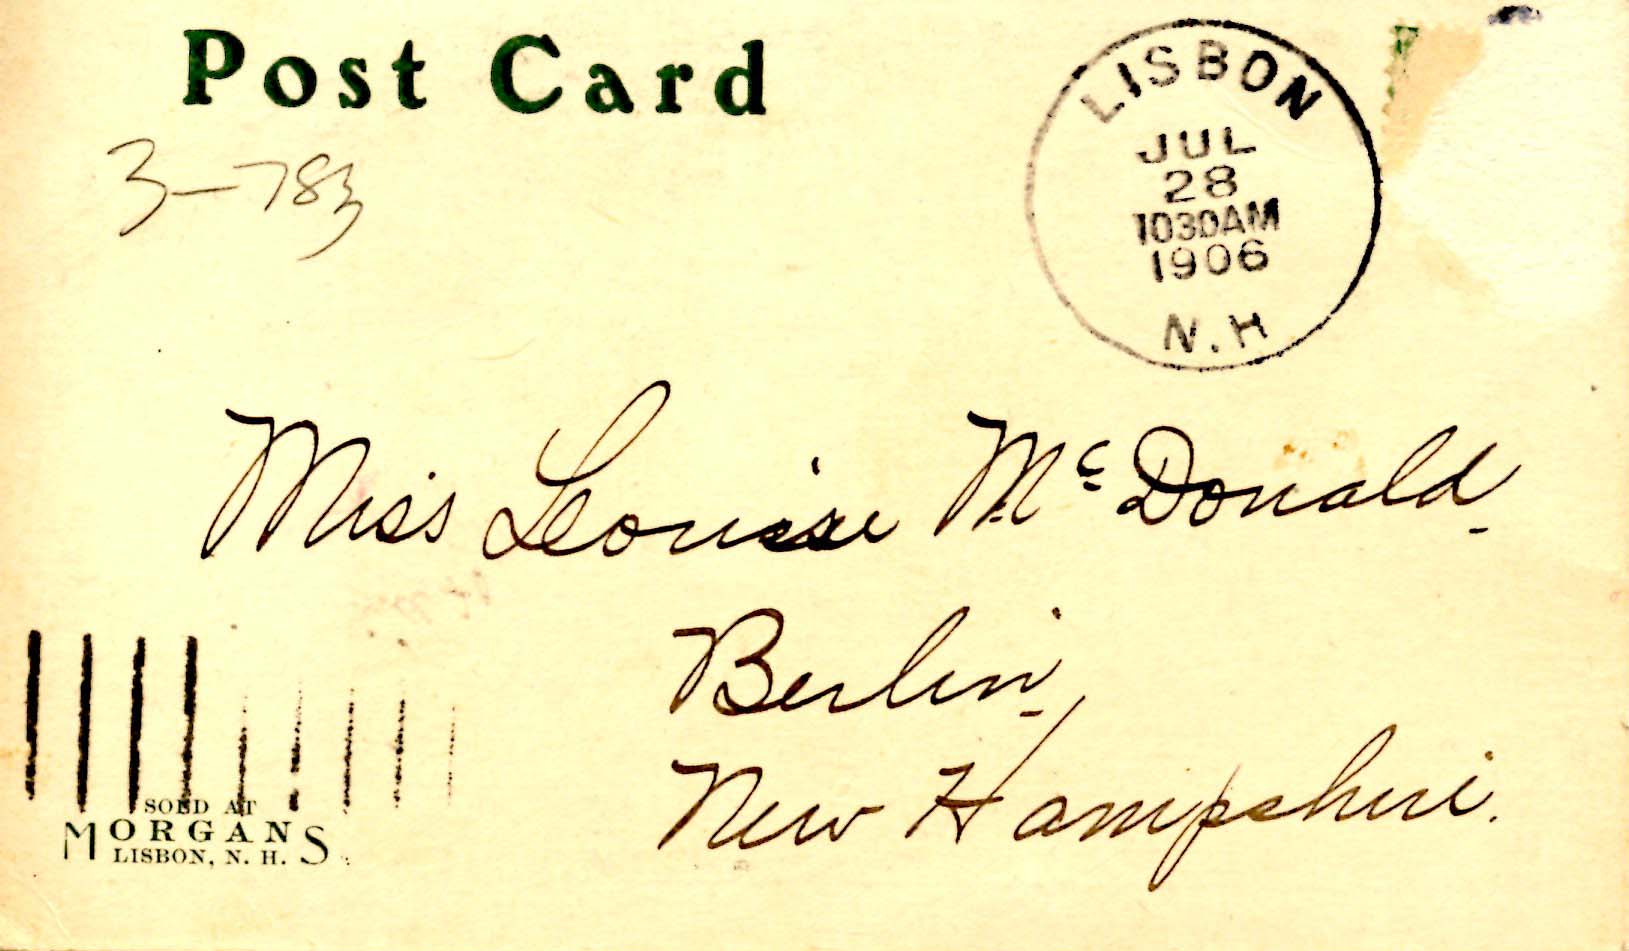 Post Card
3-783
LISBON
JUL
28
1030AM
1906
N.H
Miss Leouise Mc Donald.
Berlin,
New Hampshire.
SOLD AT
MORGANS
LISBON, N. H.